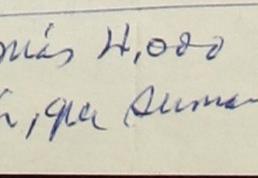 más 4,000
, que suman